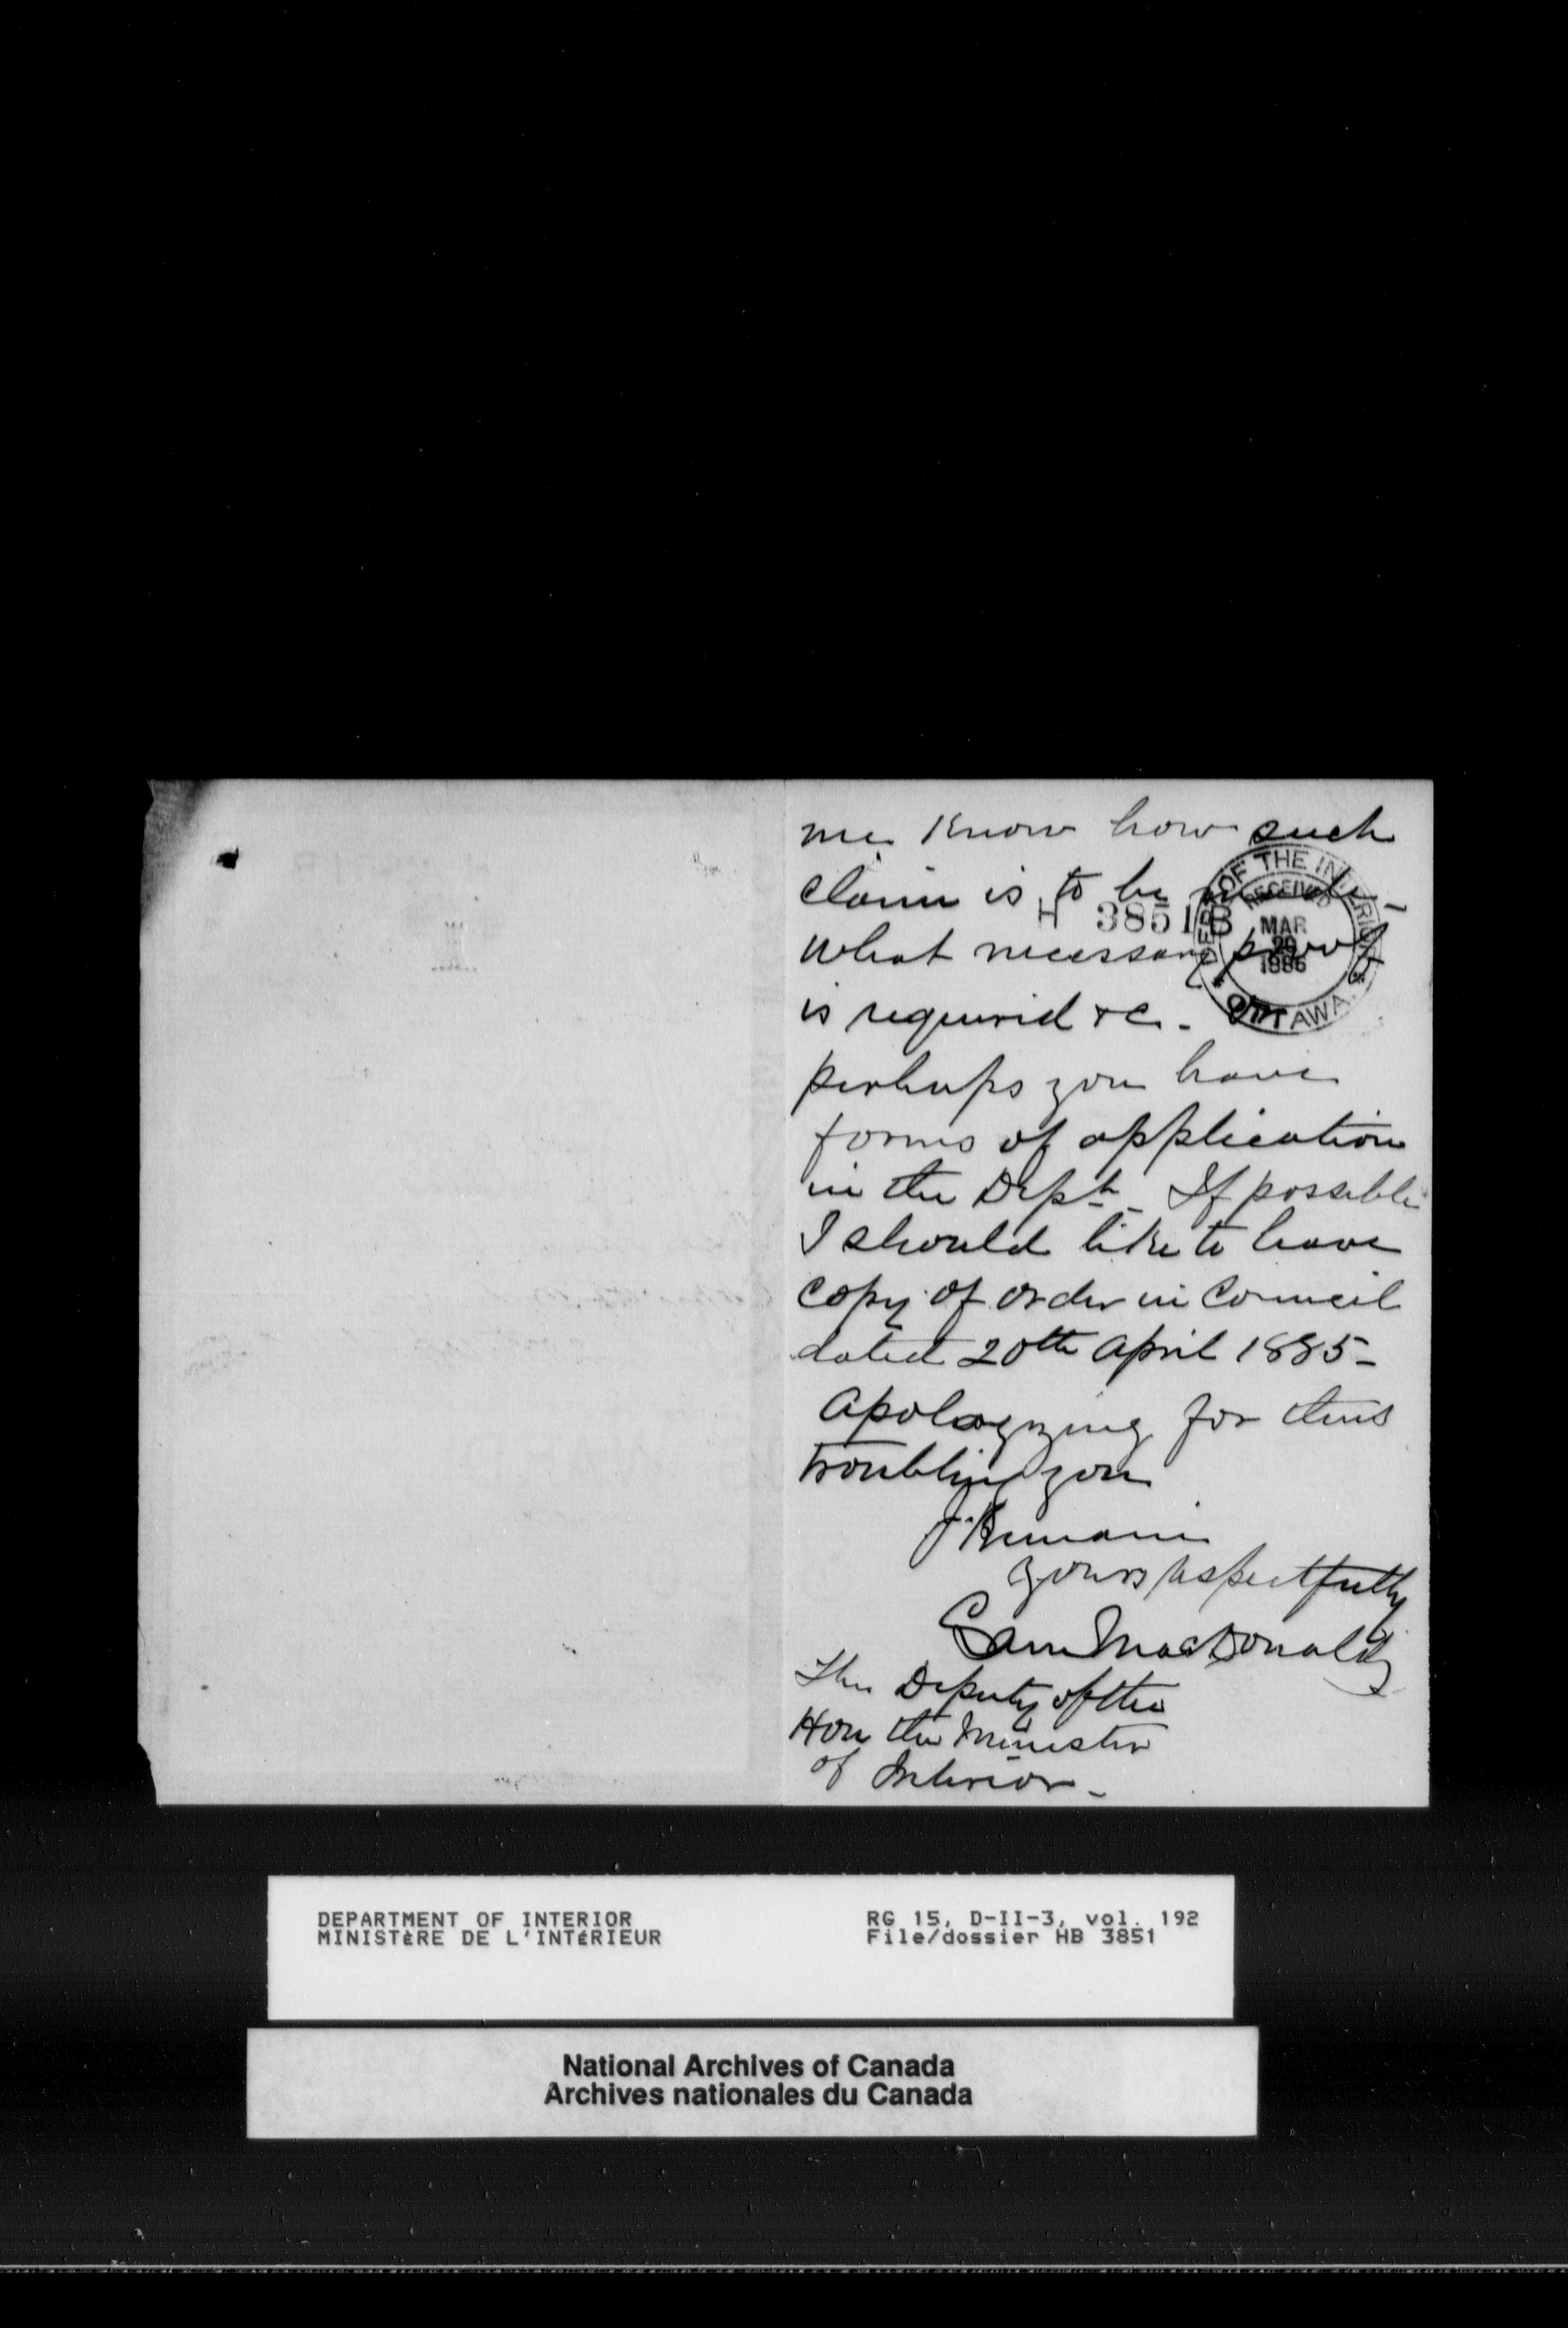 me know how such
claim is to be made -
H 3851 B
DEPT OF THE INTERIOR
RECEIVED
MAR
29
1886
OTTAWA
what necessary proof
is required &c. Or
perhaps you have
forms of application
in the Dept - If possible
I should like to have
copy of order in Council
dated 20th April 1885 -
Apologizing for thus
troubling you
I Remain
yours respectfully
Sam MacDonald
The Deputy of the
Hon the Minister
of Interior -
DEPARTMENT OF INTERIOR
MINISTÈRE DE L'INTÉRIEUR
RG 15, D-II-3, vol. 192
File/dossier HB 3851
National Archives of Canada
Archives nationales du Canada